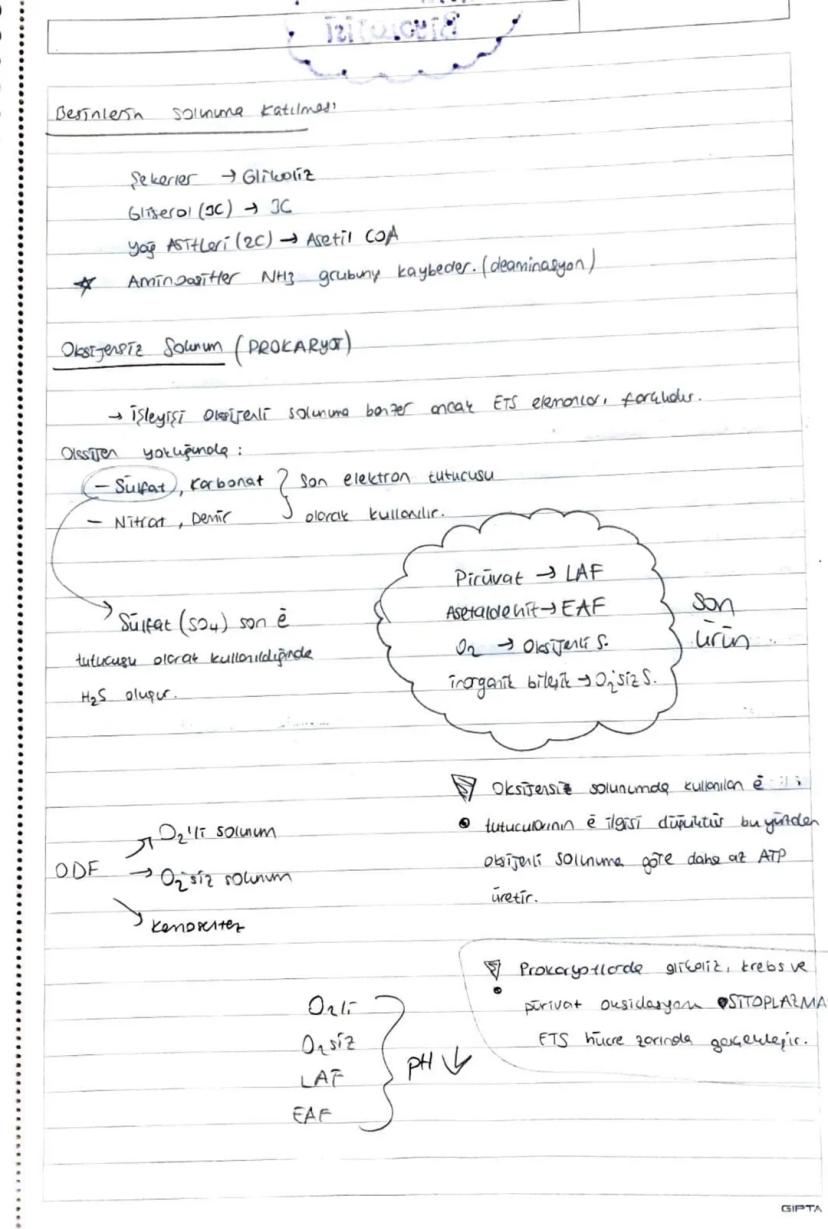 Besinlerin solunuma katılması
Şekerler → Glikoliz
Gliserol (3C) → 3C
Yağ Asitleri (2C) → Asetil COA
☆ Aminoasitler NH3 grubunu kaybeder. (deaminasyon)
Oksijensiz Solunum (PROKARYOT)
→ İşleyişi oksijenli solunuma benzer ancak ETS elemanları farklıdır.
Oksijen yokluğunda :
- Sülfat, Karbonat } Son elektron tutucusu
- Nitrat, Demir } olarak kullanılır.
Pirüvat → LAF
Asetaldehit → EAF
O2 → Oksijenli S.
inorganik bileşik → O2'siz S.
Son
ürün
Sülfat (SO4) son ē
tutucusu olarak kullanıldığında
H2S oluşur.
Oksijensiz solunumda kullanılan ē
tutucularının ē ilgisi düşüktür bu yüzden
oksijenli solunuma göre daha az ATP
üretir.
O2'li solunum
ODF → O2'siz solunum
Prokaryotlarda glikoliz, krebs ve
pürivat oksidasyonu SİTOPLAZMA
ETS hücre zarında gerçekleşir.
O2li
O2siz
LAF
EAF
pH ↓
GIPTA